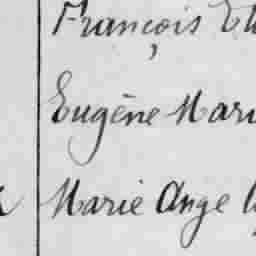 François
Eugène
Marie Ange